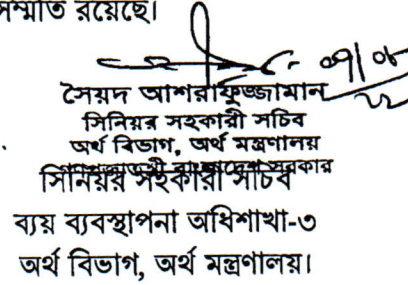 সম্মতি রয়েছে।
০৭/০৮
সৈয়দ আশরাফুজ্জামান
সিনিয়র সহকারী সচিব
অর্থ বিভাগ, অর্থ মন্ত্রণালয়
গণপ্রজাতন্ত্রী বাংলাদেশ সরকার
সিনিয়র সহকারী সচিব
ব্যয় ব্যবস্থাপনা অধিশাখা-৩
অর্থ বিভাগ, অর্থ মন্ত্রণালয়।